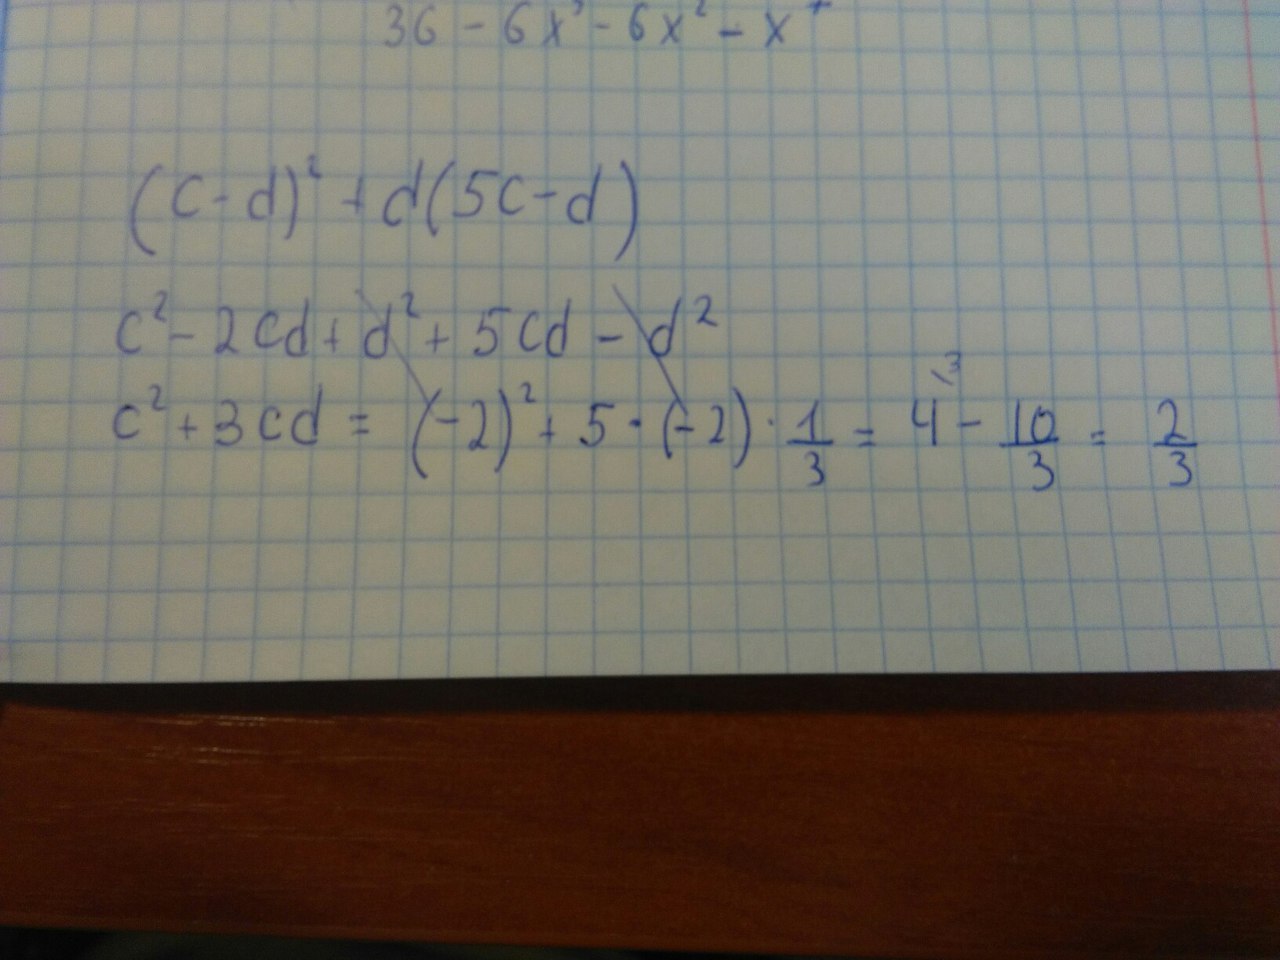 36 - 6x³ - 6x² - x
(c-d)² + d(5c-d)
c² - 2cd + d² + 5cd - d²
c² + 3cd = (-2)² + 5 · (-2) · 1/3 = 4\3 - 10/3 = 2/3